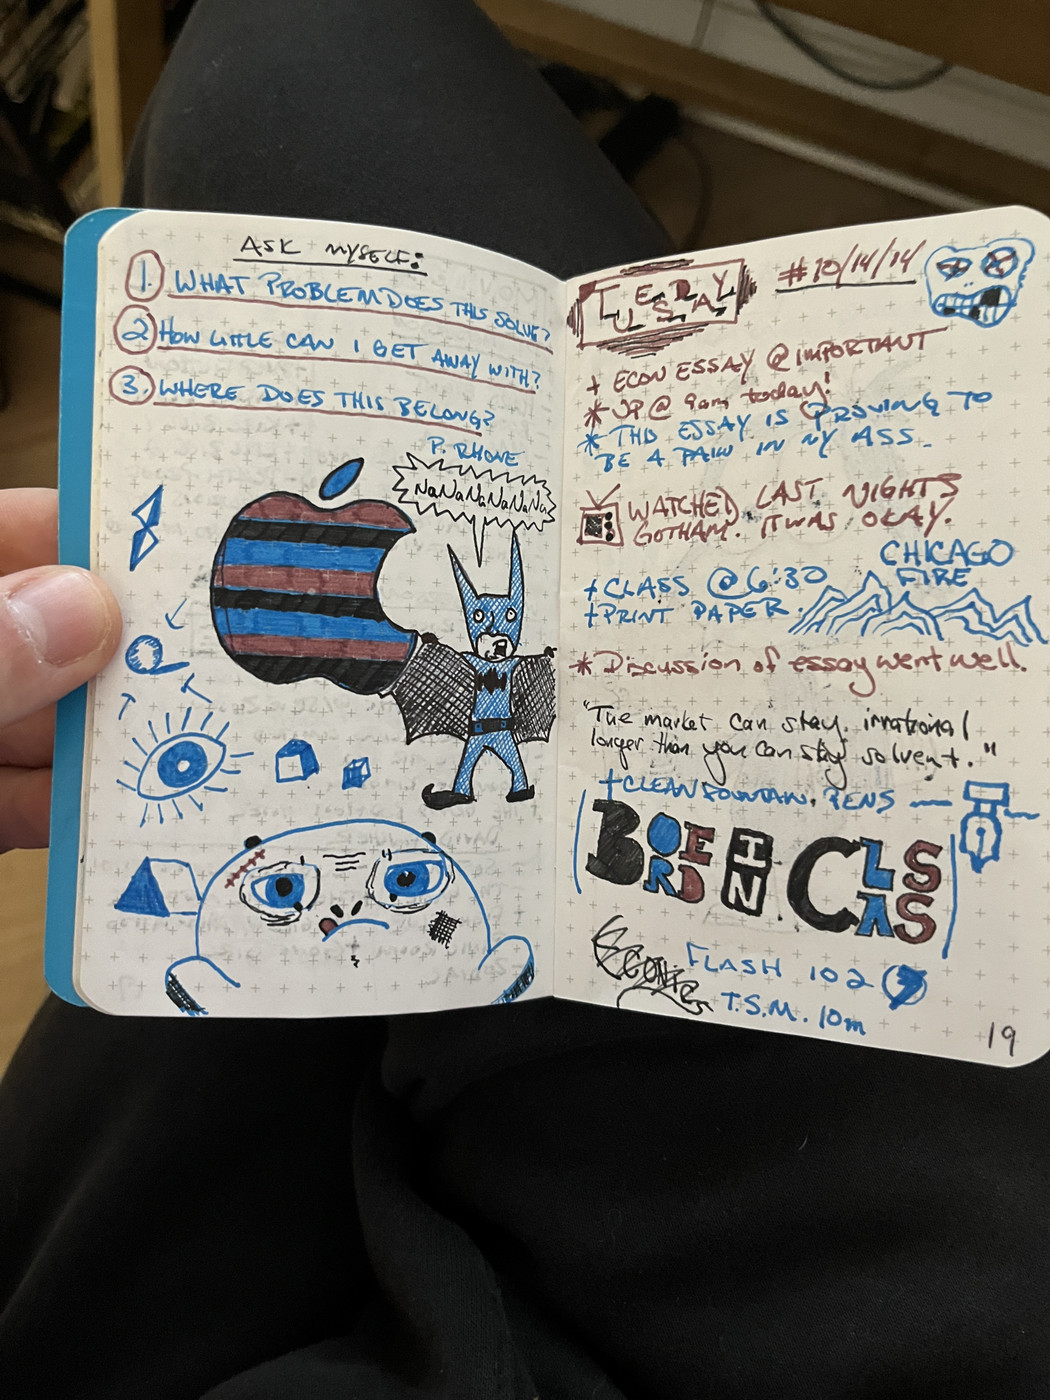 ASK MYSELF:
1. WHAT PROBLEM DOES THIS SOLVE?
2 HOW LITTLE CAN I GET AWAY WITH?
3. WHERE DOES THIS BELONG?
P. RHONE
NaNaNaNaNaNa
TUESDAY
#10/14/14
+ ECON ESSAY @ IMPORTANT
* UP @ 9am today!
* THIS ESSAY IS PROVING TO
BE A PAIN IN MY ASS.
WATCHED LAST NIGHTS
GOTHAM. IT WAS OKAY.
CHICAGO
FIRE
+ CLASS @ 6:30
+ PRINT PAPER.
* Discussion of essay went well.
"The market can stay irrational
longer than you can stay solvent."
+ CLEAN FOUNTAIN PENS
BORED IN CLASS
FLASH 102
T.S.M. 10m
19